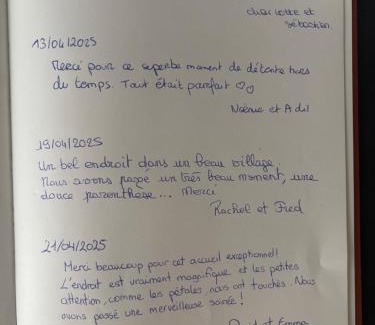 Charlotte et
Sébastien
13/04/2025
Merci pour ce superbe moment de détente hors
du temps. Tout était parfait ♡♡
et Adil
19/04/2025
Un bel endroit dans un beau village.
Nous avons passé un très beau moment, une
douce parenthèse... Merci
Rachel et Fred
21/04/2025
Merci beaucoup pour cet accueil exceptionnel!
L'endroit est vraiment magnifique et les petites
attention, comme les pétales nous ont touchés. Nous
avons passé une merveilleuse soirée!
et Emma